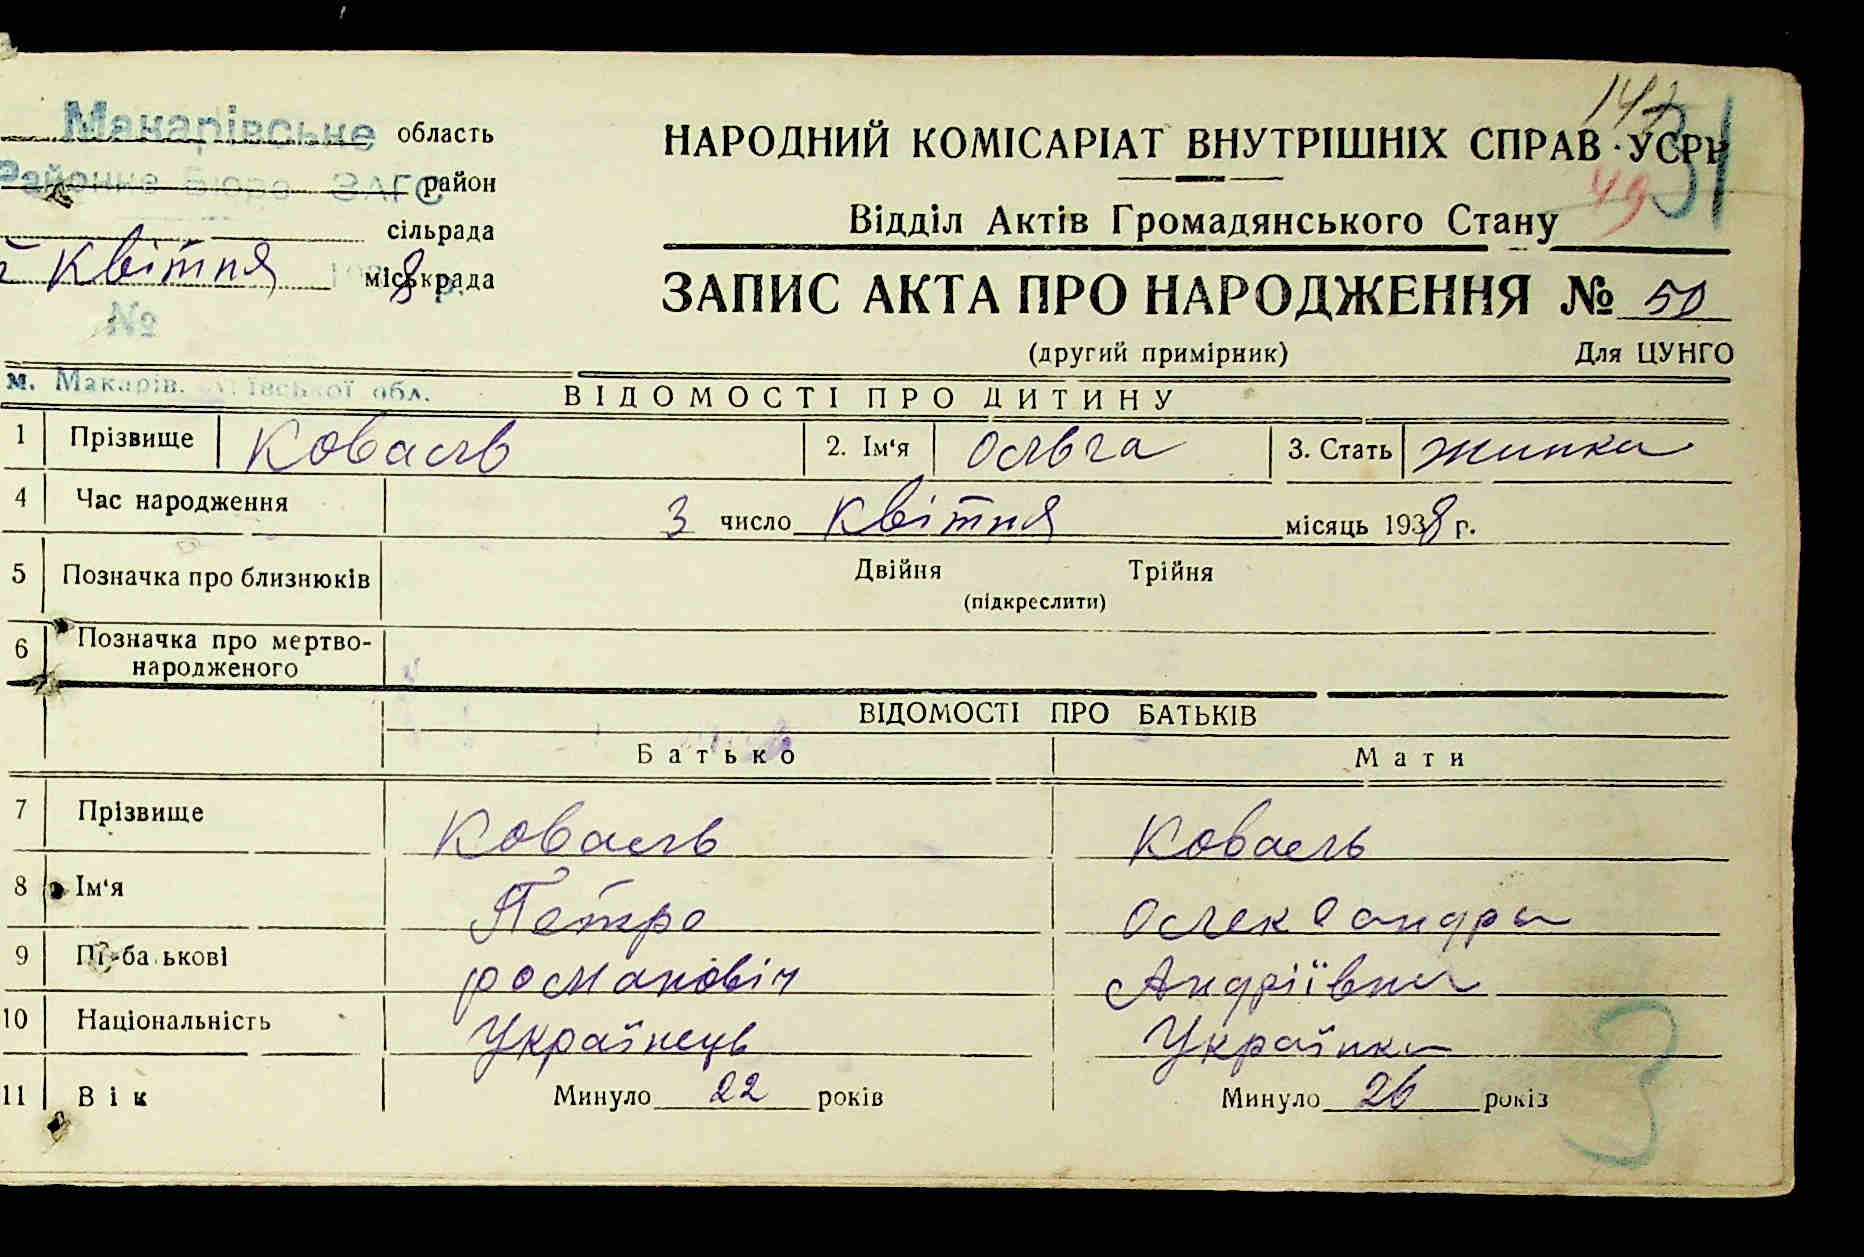 Макарівське область
Районне Бюро ЗАГС район
сільрада
Квітня 1938 р. міськрада
№
м. Макарів. Київської обл.
147
31
49
НАРОДНИЙ КОМІСАРІАТ ВНУТРІШНІХ СПРАВ УСРР
Відділ Актів Громадянського Стану
ЗАПИС АКТА ПРО НАРОДЖЕННЯ № 50
(другий примірник) Для ЦУНГО
ВІДОМОСТІ ПРО ДИТИНУ
1 Прізвище Коваль 2. Ім'я Ольга 3. Стать жинка
4 Час народження 3 число Квітня місяць 1938 р.
5 Позначка про близнюків Двійня Трійня
(підкреслити)
6 Позначка про мертво-
народженого
ВІДОМОСТІ ПРО БАТЬКІВ
Батько Мати
7 Прізвище Коваль Коваль
8 Ім'я Петро Олександра
9 По-батькові романовіч Андріївна
10 Національність Українець Українка
11 Вік Минуло 22 років Минуло 26 років
3